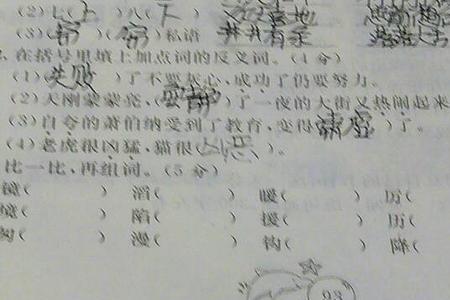 (2)七(上)八(下)
(3)(窃)(窃)私语 井井有条
在括号里填上加点词的反义词。(4分)
(1)(失败)了不要灰心,成功了仍要努力。
(2)天刚蒙蒙亮,( )了一夜的大街又热闹起来
(3)自夸的萧伯纳受到了教育,变得(谦虚)了。
(4)老虎很凶猛,猫很( )。
比一比,再组词。(5分)
镜( ) 滔( ) 暖( ) 厉(
境( ) 陷( ) 援( ) 历(
( ) 漫( ) 钩( ) 降(
93